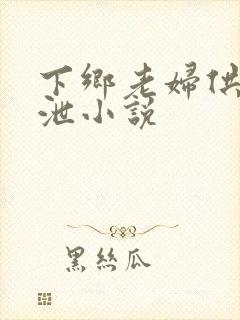 下鄉老婦供
泄小說
黑絲瓜